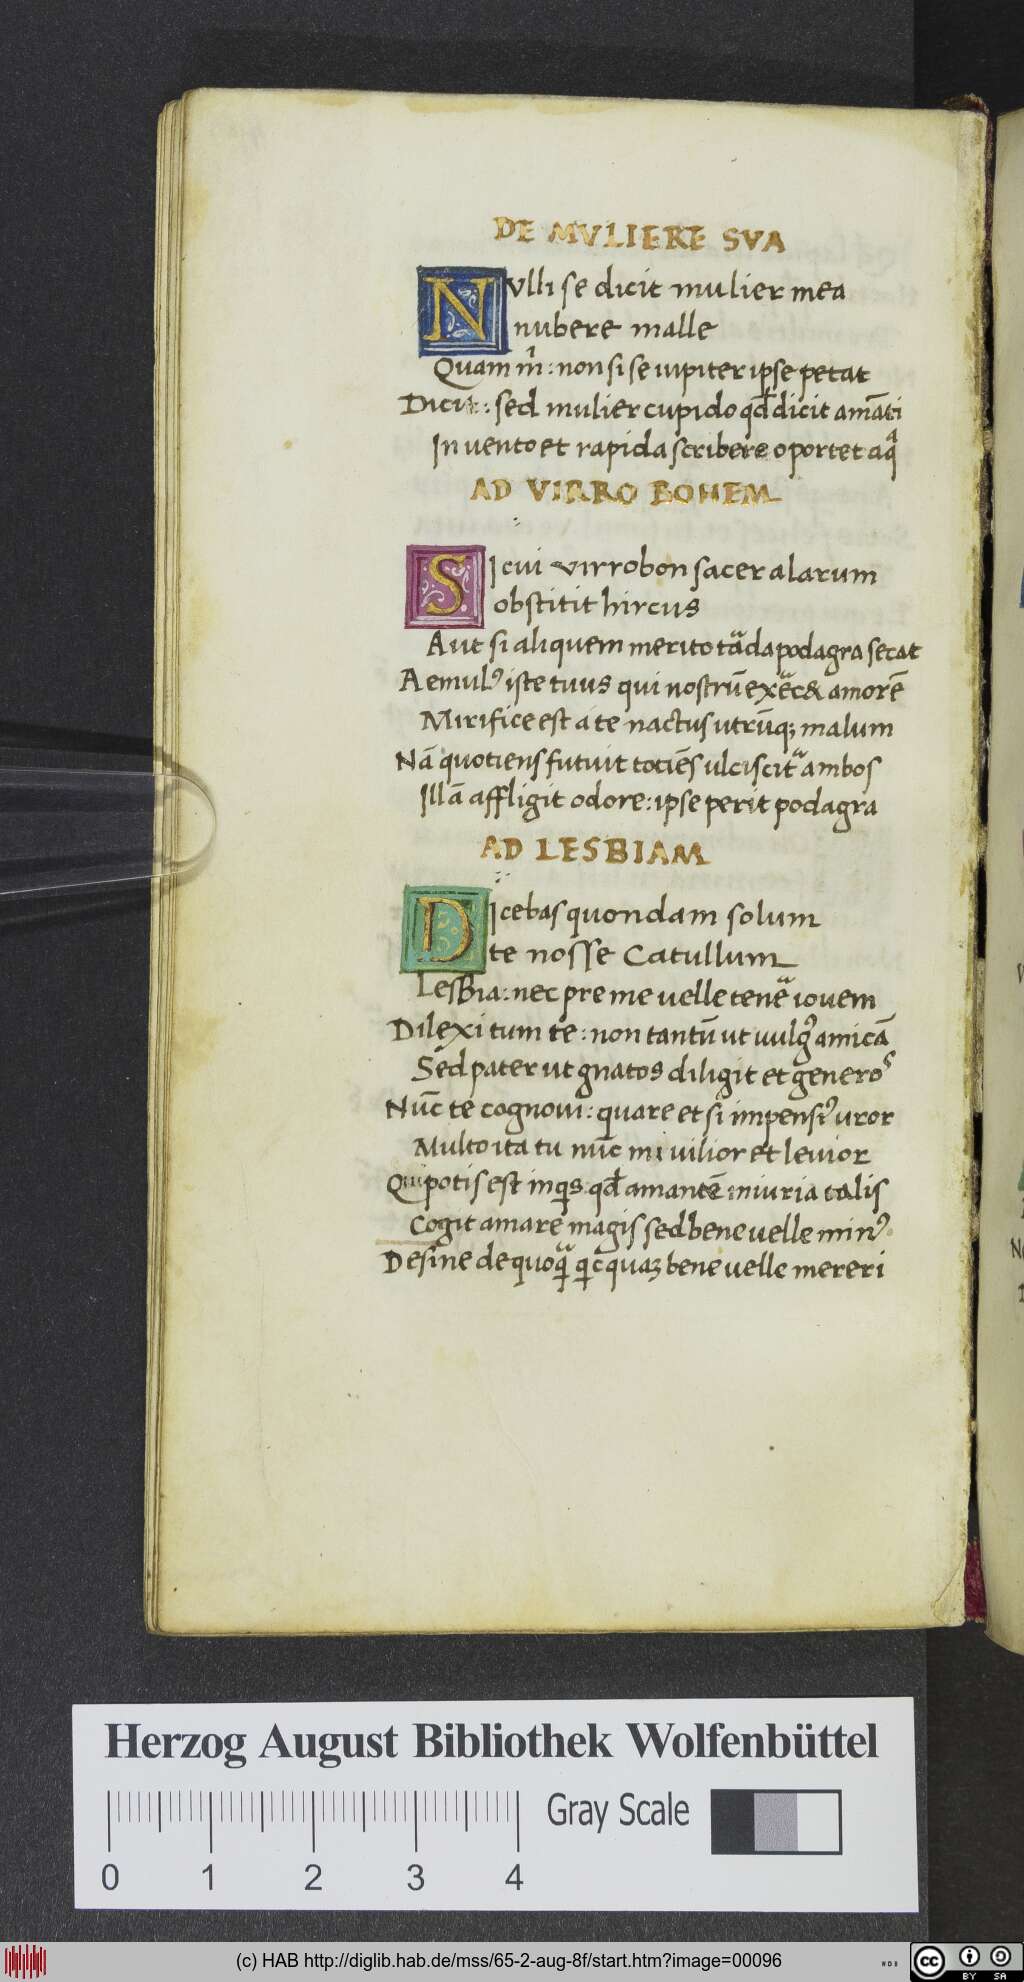 DE MVLIERE SVA
NVlli se dicit mulier mea
nubere malle
Quam m̄: non si se iupiter ipse petat
Dicit: sed mulier cupido qđ dicit amāti
In vento et rapida scribere oportet aqͣ
AD VIRRO BOHEM
SI cui virrobon sacer alarum
obstitit hircus
Aut si aliquem merito tᷓda podagra secat
Aemulꝰ iste tuus qui nostrū exᷓc& amorē
Mirifice est a te nactus utrūq; malum
Nā quotiens futuit totiēs ulciscitᷓ ambos
Illā affligit odore: ipse perit podagra
AD LESBIAM
DIcebas quondam solum
te nosse Catullum
Lesbia: nec pre me uelle tenēͣ iouem
Dilexi tum te: non tantū ut uulgꝰ amicā
Sed pater ut gnatos diligit et generoˢ
Nūc te cognoui: quare et si impensiꝰ uror
Multo ita tu nūc mi uilior et leuior
Qui potis est inqͥs. qđ amantē iniuria talis
Cogit amare magis sed bene uelle minꝰ
Desine de quoqᷓ qͥcquaȝ bene uelle mereri
Herzog August Bibliothek Wolfenbüttel
0 1 2 3 4
Gray Scale
(c) HAB http://diglib.hab.de/mss/65-2-aug-8f/start.htm?image=00096
cc BY SA